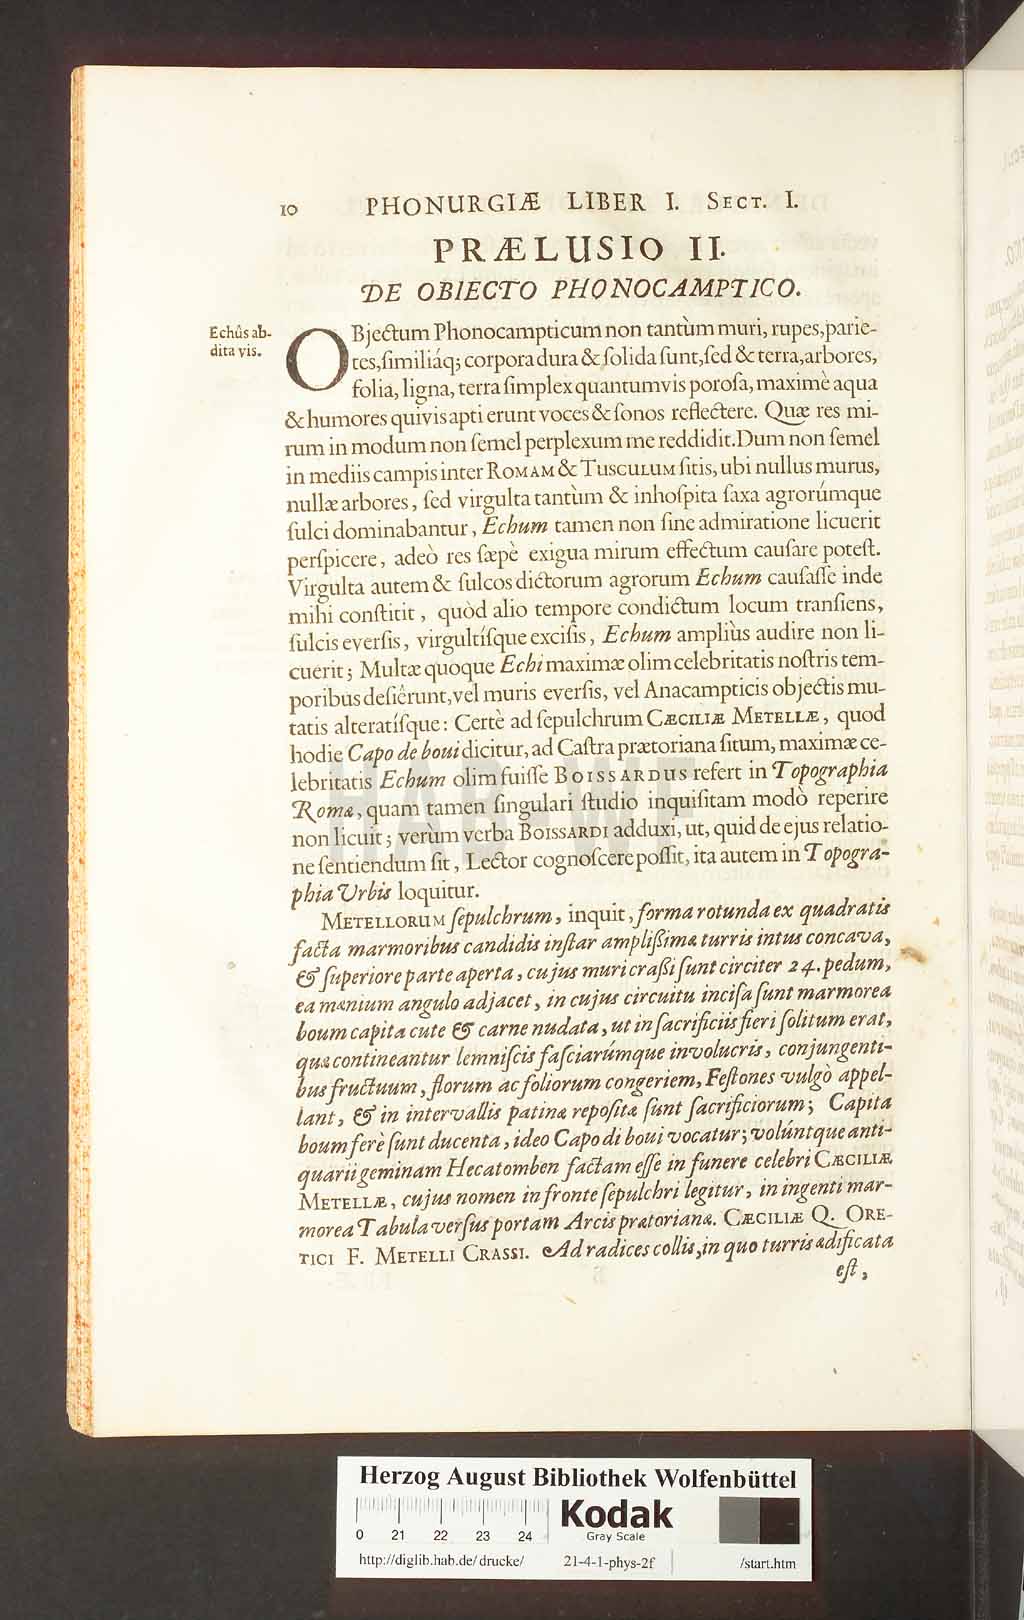 10 PHONURGIÆ LIBER I. SECT. I.
PRÆLUSIO II.
DE OBIECTO PHONOCAMPTICO.
Echûs ab-
dita vis.
OBjectum Phonocampticum non tantùm muri, rupes, parie-
tes, ſimiliáq; corpora dura & ſolida ſunt, ſed & terra, arbores,
folia, ligna, terra ſimplex quantumvis poroſa, maximè aqua
& humores quivis apti erunt voces & ſonos reflectere. Quæ res mi-
rum in modum non ſemel perplexum me reddidit. Dum non ſemel
in mediis campis inter ROMAM & TUSCULUM ſitis, ubi nullus murus,
nullæ arbores, ſed virgulta tantùm & inhoſpita ſaxa agrorúmque
ſulci dominabantur, Echum tamen non ſine admiratione licuerit
perſpicere, adeò res ſæpè exigua mirum effectum cauſare poteſt.
Virgulta autem & ſulcos dictorum agrorum Echum cauſaſſe inde
mihi conſtitit, quòd alio tempore condictum locum tranſiens,
ſulcis everſis, virgultíſque exciſis, Echum ampliùs audire non li-
cuerit; Multæ quoque Echi maximæ olim celebritatis noſtris tem-
poribus deſiêrunt, vel muris everſis, vel Anacampticis objectis mu-
tatis alteratíſque: Certè ad ſepulchrum CÆCILIÆ METELLÆ, quod
hodie Capo de boui dicitur, ad Caſtra prætoriana ſitum, maximæ ce-
lebritatis Echum olim fuiſſe BOISSARDUS refert in Topographia
Romæ, quam tamen ſingulari ſtudio inquiſitam modò reperire
non licuit; verùm verba BOISSARDI adduxi, ut, quid de ejus relatio-
ne ſentiendum ſit, Lector cognoſcere poſſit, ita autem in Topogra-
phia Urbis loquitur.
METELLORUM ſepulchrum, inquit, forma rotunda ex quadratis
facta marmoribus candidis inſtar ampliſſimæ turris intus concava,
& ſuperiore parte aperta, cujus muri craſſi ſunt circiter 24. pedum,
ea mænium angulo adjacet, in cujus circuitu inciſa ſunt marmorea
boum capita cute & carne nudata, ut in ſacrificiis fieri ſolitum erat,
quæ contineantur lemniſcis faſciarúmque involucris, conjungenti-
bus fructuum, florum ac foliorum congeriem, Feſtones vulgò appel-
lant, & in intervallis patinæ repoſitæ ſunt ſacrificiorum; Capita
boum ferè ſunt ducenta, ideo Capo di boui vocatur; volúntque anti-
quarii geminam Hecatomben factam eſſe in funere celebri CÆCILIÆ
METELLÆ, cujus nomen in fronte ſepulchri legitur, in ingenti mar-
morea Tabula verſus portam Arcis prætorianæ. CÆCILIÆ Q. ORE-
TICI F. METELLI CRASSI. Ad radices collis, in quo turris ædificata
eſt,
HAB-WF
Herzog August Bibliothek Wolfenbüttel
Kodak
0 21 22 23 24
Gray Scale
http://diglib.hab.de/drucke/ 21-4-1-phys-2f /start.htm